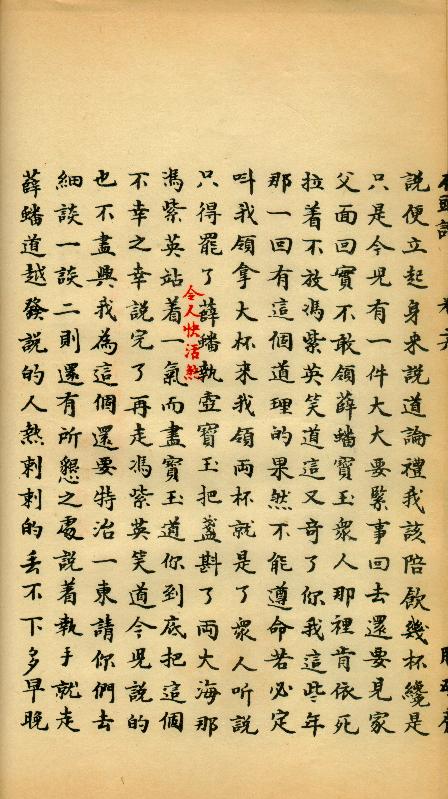 說便立起身來說道論禮我該陪飲幾杯纔是
只是今兒有一件大大要緊事回去還要見家
父面回實不敢領薛蟠寶玉眾人那裡肯依死
拉着不放馮紫英笑道這又奇了你我這些年
那一回有這個道理的果然不能遵命若必定
叫我領拿大杯來我領兩杯就是了眾人听說
只得罷了薛蟠執壺寶玉把盞斟了兩大海那
令人快活煞
馮紫英站着一氣而盡寶玉道你到底把這個
不幸之幸說完了再走馮紫英笑道今兒說的
也不盡興我為這個還要特治一東請你們去
細談一談二則還有所懇之處說着執手就走
薛蟠道越發說的人熱剌剌的丟不下多早晚